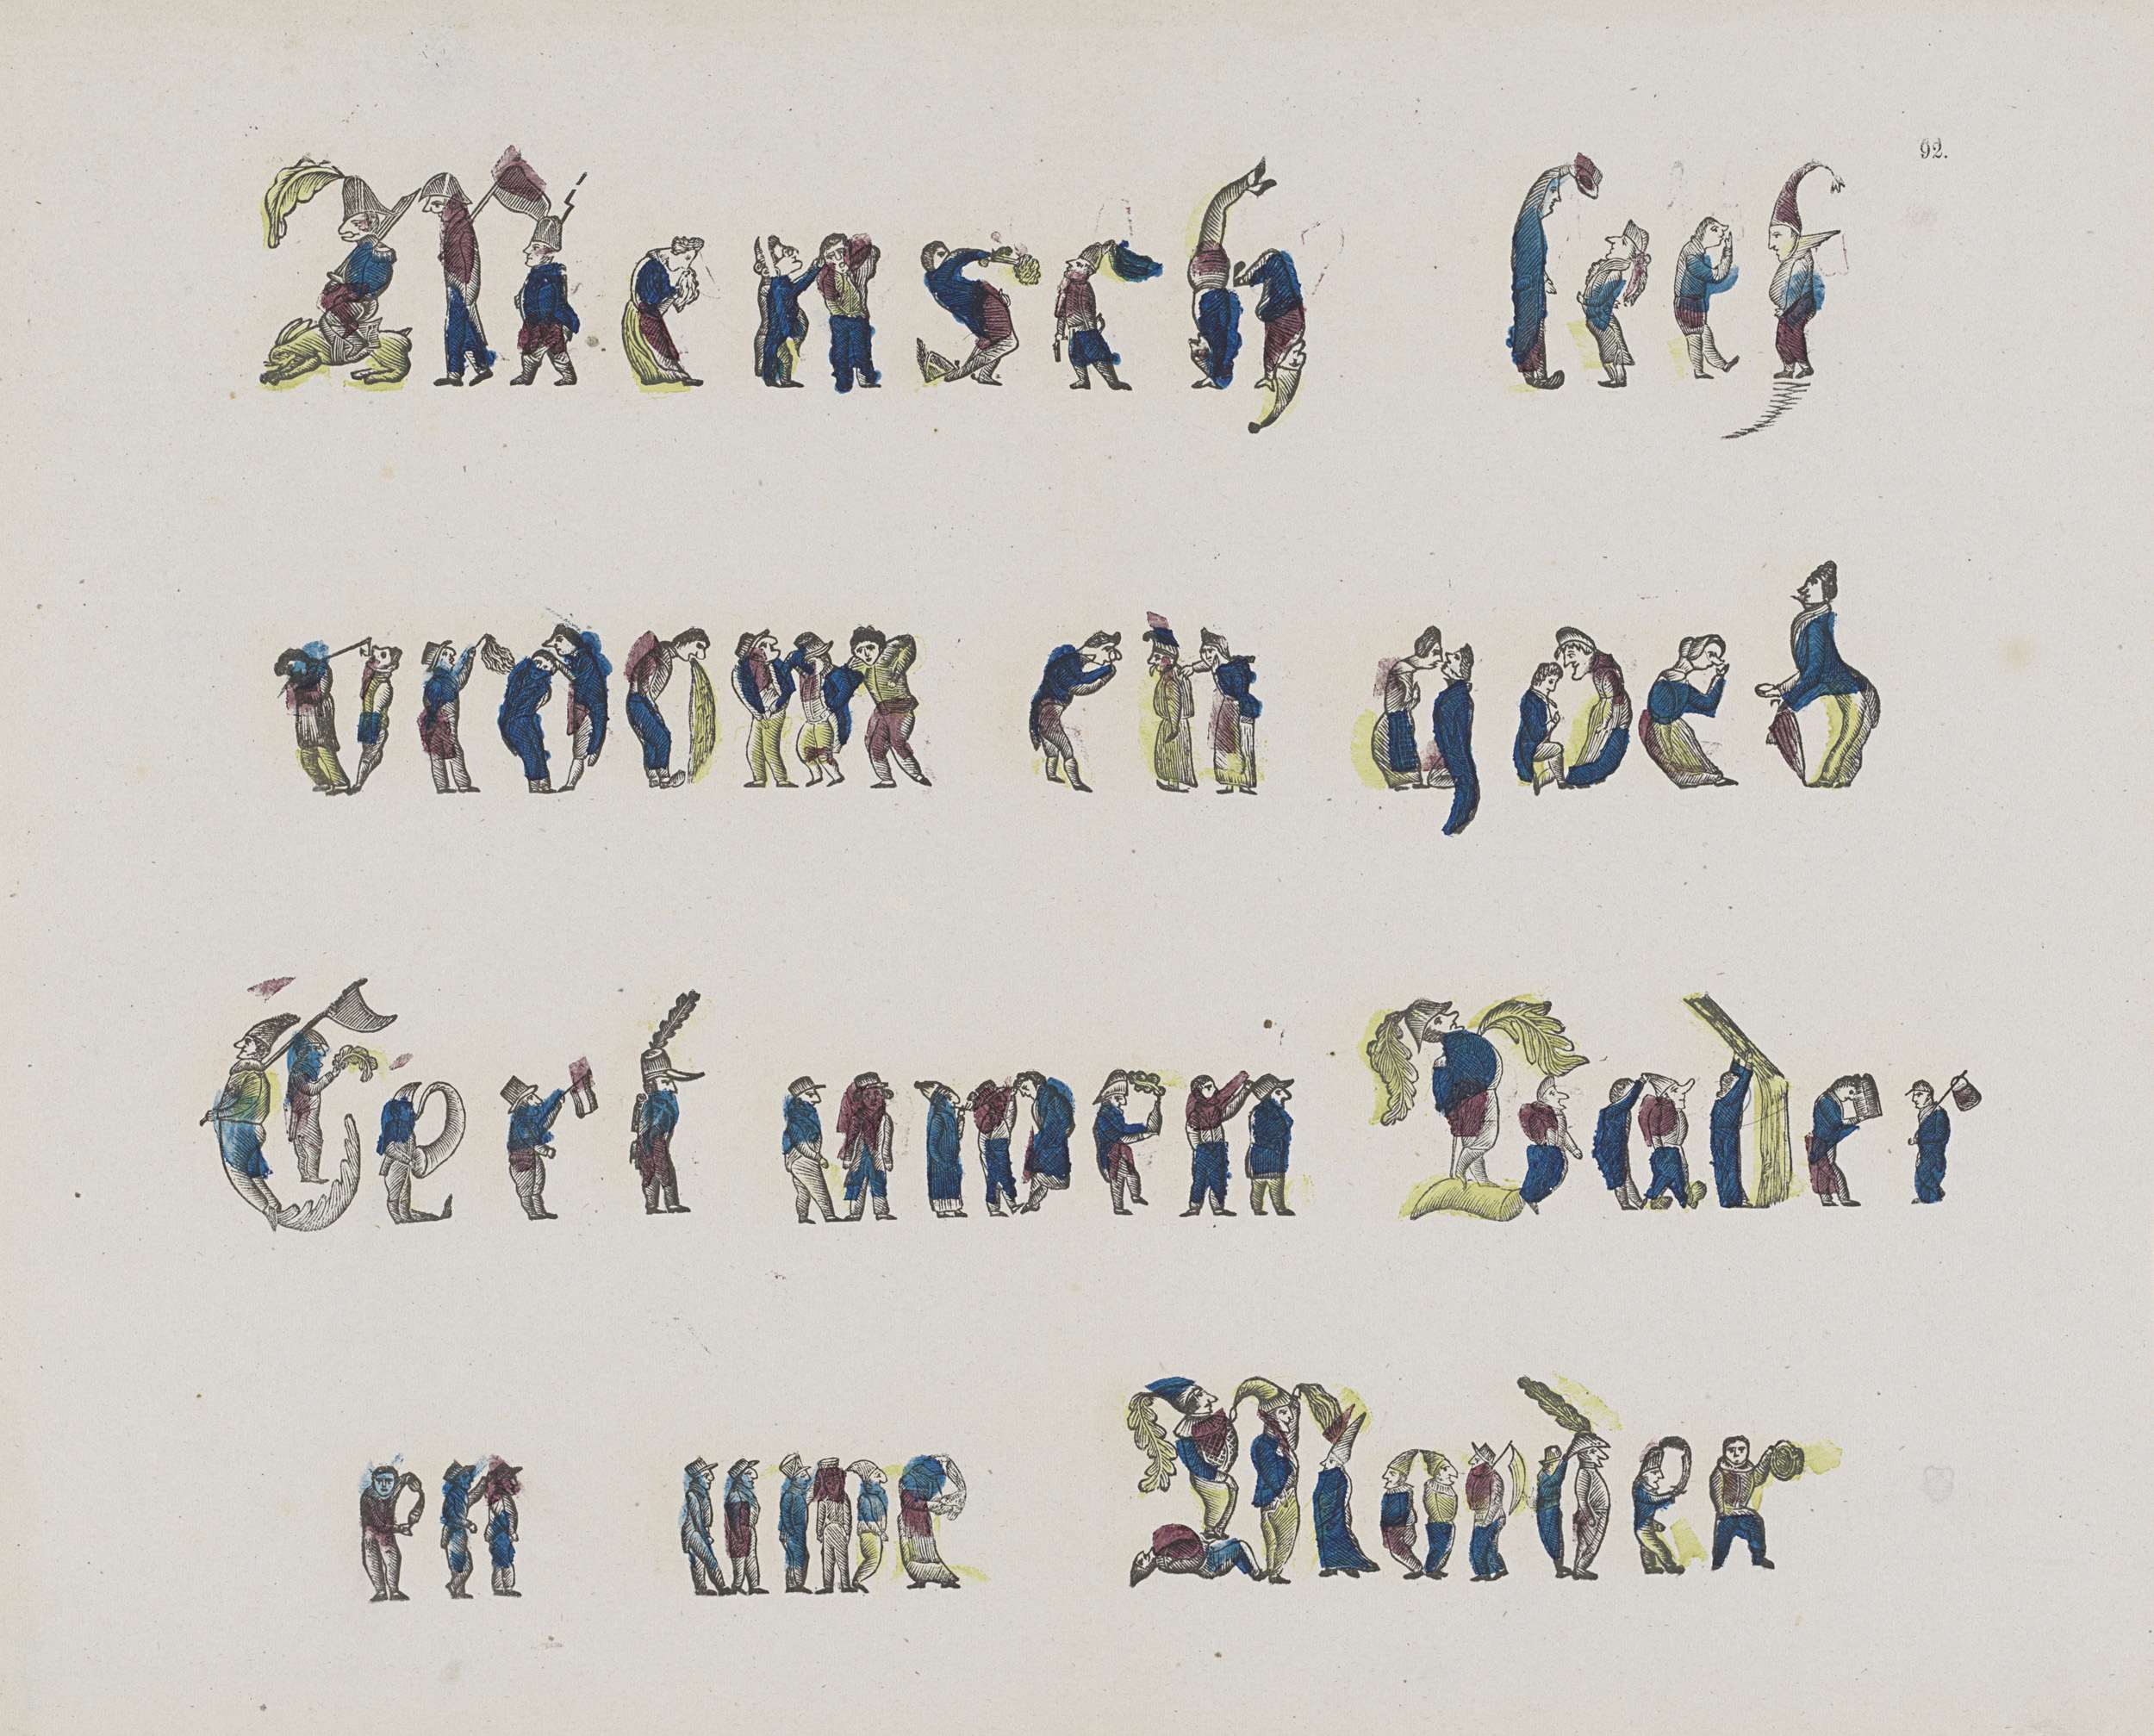 92.
Mensch leef
vroom en goed
Eert uwen Vader
en uwe Moeder